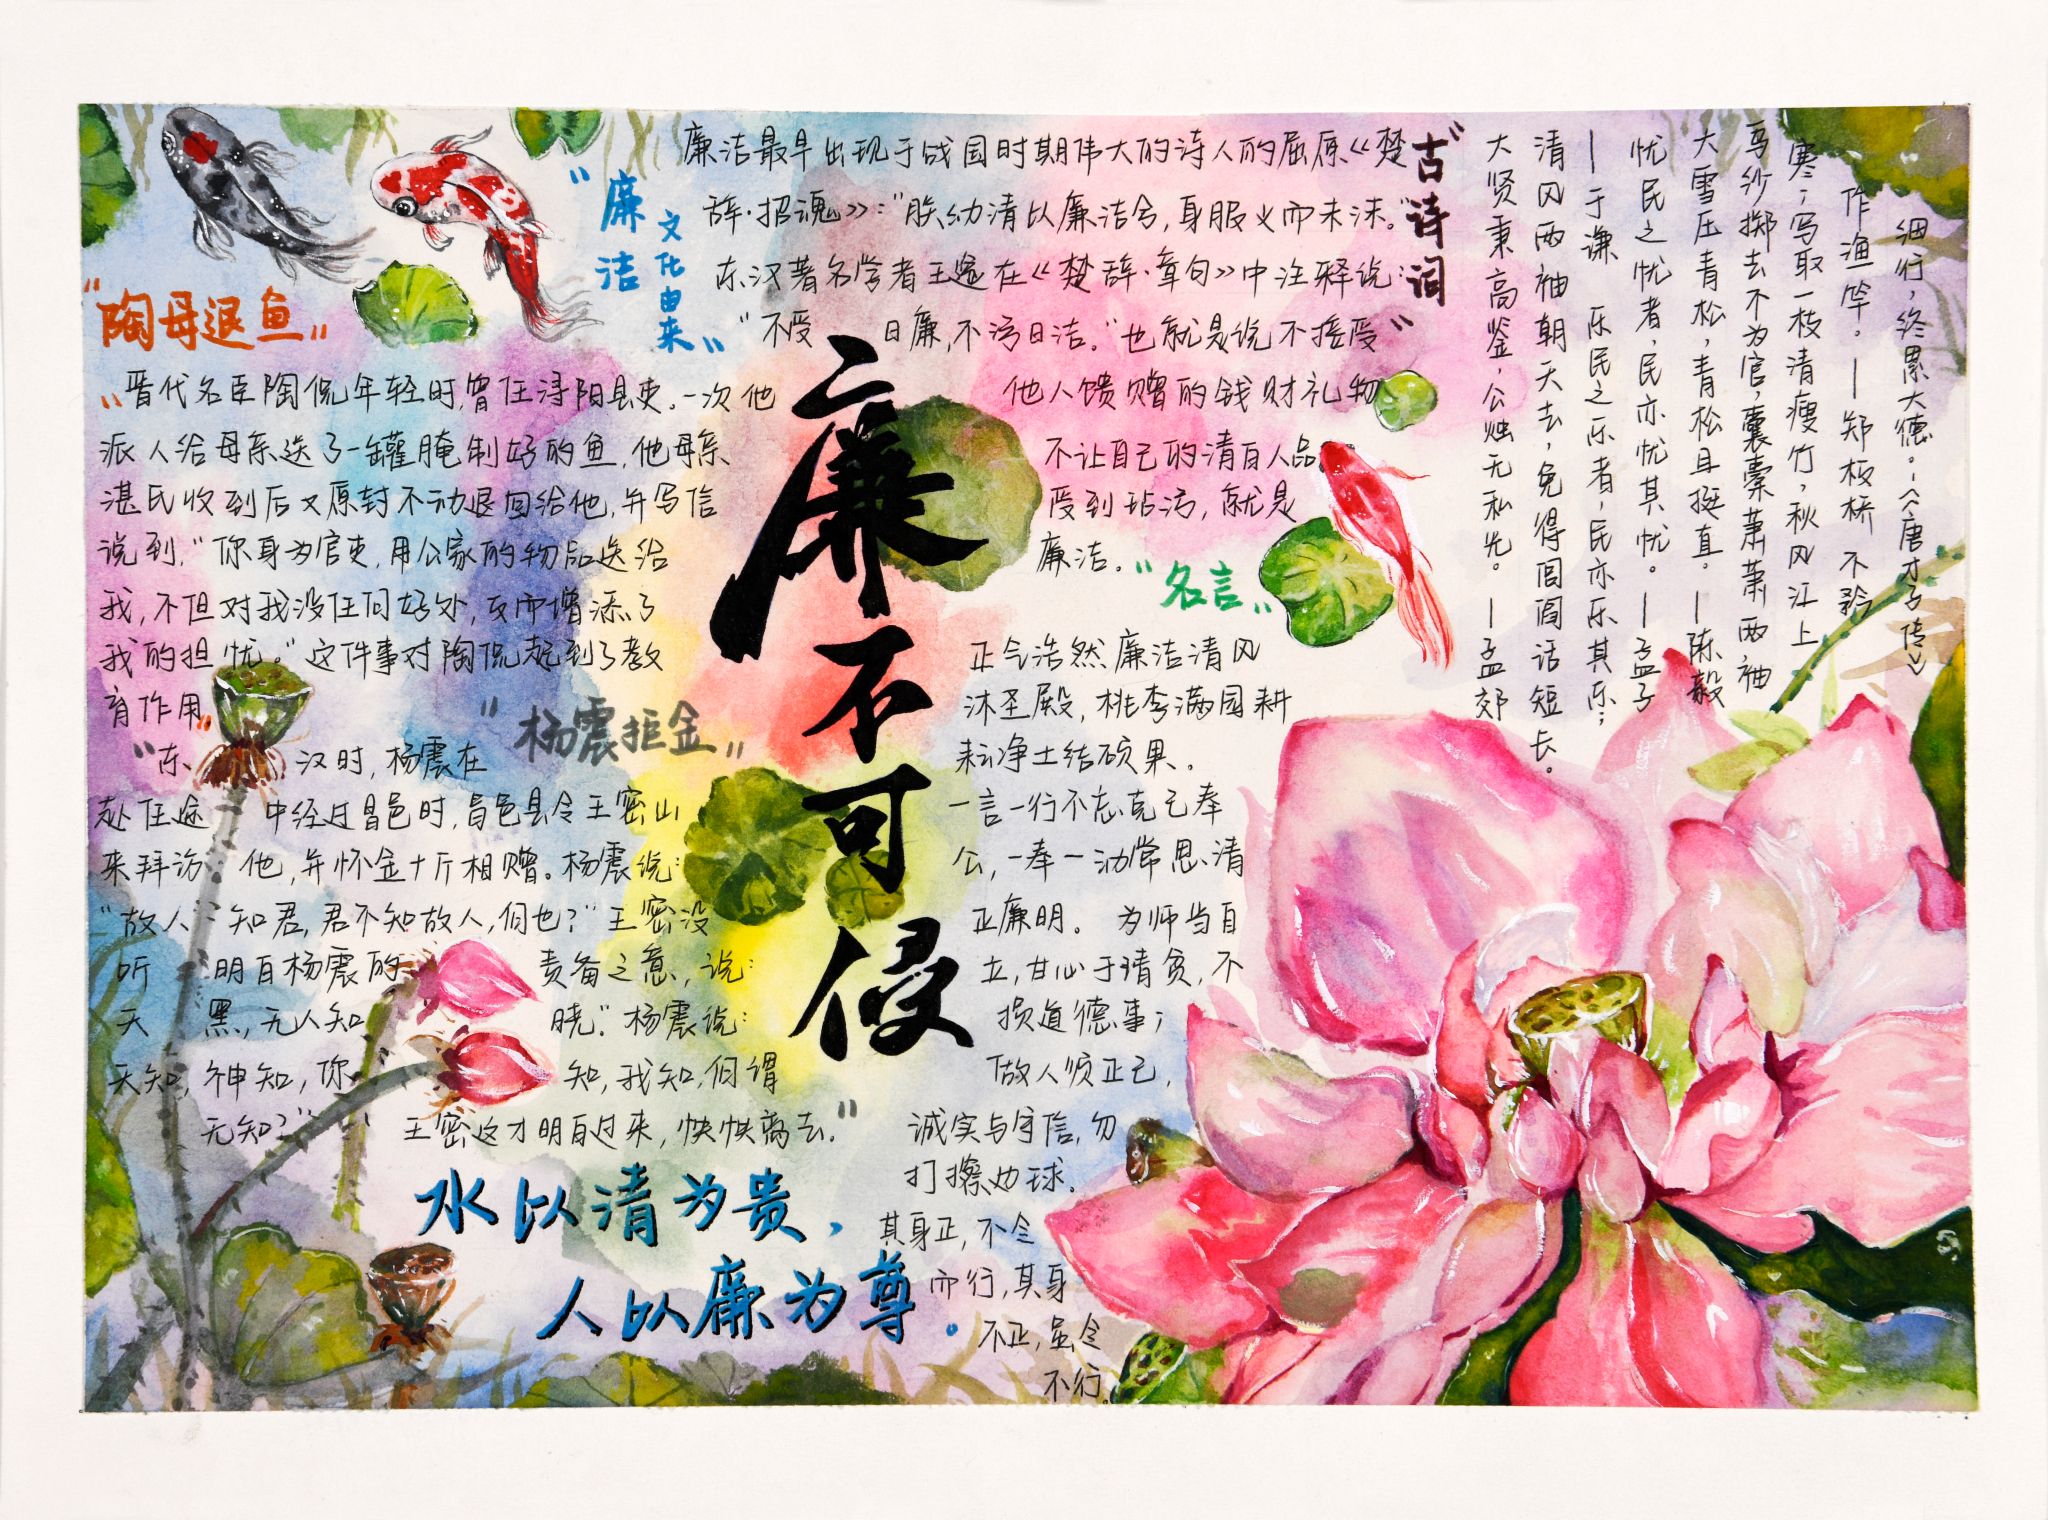 廉不可侵
"廉洁
文化由来"
廉洁最早出现于战国时期伟大的诗人的屈原《楚
辞·招魂》:"朕幼清以廉洁兮,身服义而未沫。"
东汉著名学者王逸在《楚辞·章句》中注释说:
"不受曰廉,不污曰洁。"也就是说不接受
他人馈赠的钱财礼物
不让自己的清白人品
受到玷污,就是
廉洁。
"古诗词"
大贤秉高鉴,公烛无私光。—孟郊
清风两袖朝天去,免得闾阎话短长。
—于谦 乐民之乐者,民亦乐其乐;
忧民之忧者,民亦忧其忧。—孟子
大雪压青松,青松且挺直。—陈毅
乌纱掷去不为官,囊橐萧萧两袖
寒;写取一枝清瘦竹,秋风江上
作渔竿。—郑板桥 不矜
细行,终累大德。-《唐才子传》
"陶母退鱼"
"晋代名臣陶侃年轻时,曾任浔阳县吏。一次他
派人给母亲送了一罐腌制好的鱼,他母亲
湛氏收到后又原封不动退回给他,并写信
说到,"你身为官吏,用公家的物品送给
我,不但对我没任何好处,反而增添了
我的担忧。"这件事对陶侃起到了教
育作用"
"杨震拒金"
"东汉时,杨震在
赴任途中经过昌邑时,昌邑县令王密山
来拜访他,并怀金十斤相赠。杨震说:
"故人知君,君不知故人,何也?"王密没
听明白杨震的责备之意,说:
天黑,无人知晓"。杨震说:
天知,神知,你知,我知,何谓
无知?"王密这才明白过来,怏怏离去。"
"名言"
正气浩然廉洁清风
沐圣殿,桃李满园耕
耘净土结硕果。
一言一行不忘克己奉
公,一举一动常思清
正廉明。 为师当自
立,甘心于清贫,不
损道德事;
做人须正己,
诚实与守信,勿
打擦边球。
其身正,不令
而行,其身
不正,虽令
不行。
水以清为贵,
人以廉为尊。